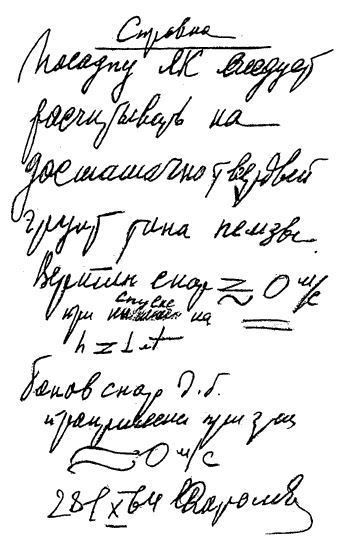 Справка
Посадку ЛК следует
рассчитывать на
достаточно твердый
грунт типа пемзы.
Вертик скор ≈ 0 м/с
спуске
при на
h = 1 м
Боков скор д.б.
≈ 0 м/с
28/X 64 Королев